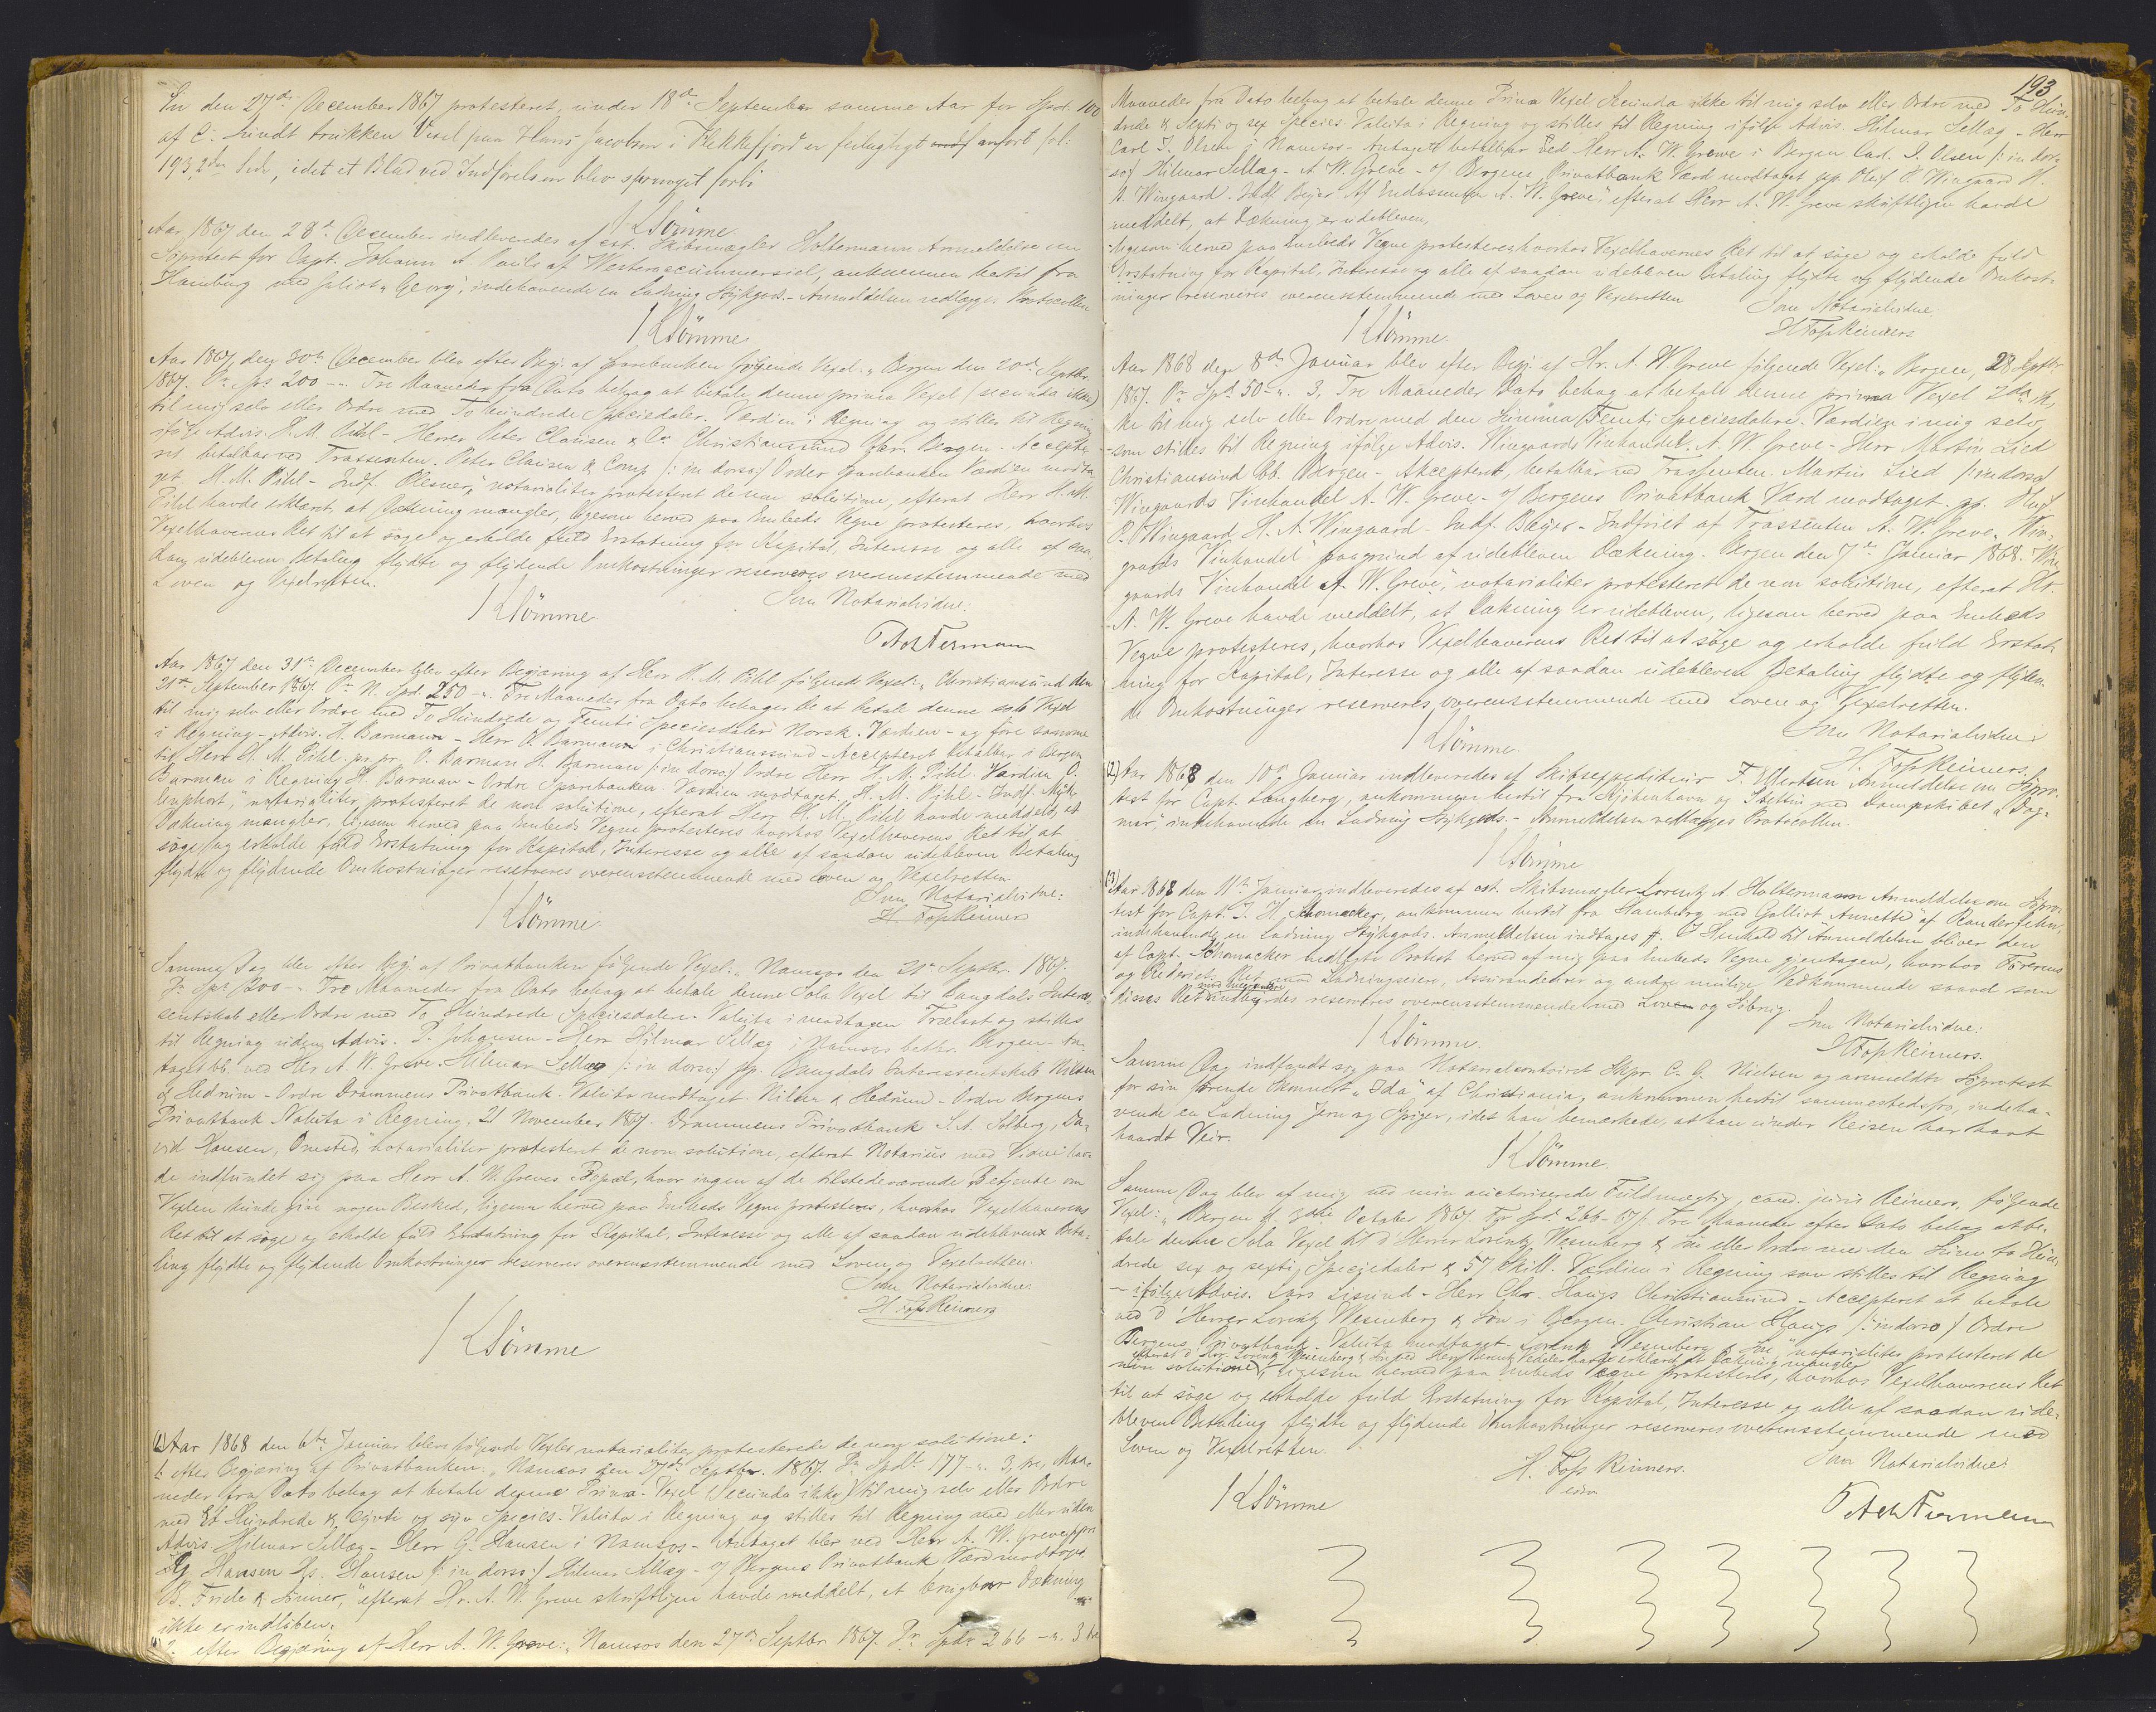 En den 27de December 1867 protesteret, under 18de September samme Aar for Spd. 100
af C. Lindt trukken Vexel paa Hans Jacobsen i Flekkefjord er feilagtigt anført fol:
193, 2den Side, idet et Blad ved Indførelsen blev sprunget forbi
KSömme
Aar 1867 den 28de December indleveredes af cst. Skibsmægler Holtermann Anmeldelse om
Söprotest for Capt. Johann A. Pauls af Westeraccummersiel, ankommen hertil fra
Hamburg med Galiot "Georg", indehavende en Ladning Stykgods. - Anmeldelsen vedlægges Protocollen
KSömme
Aar 1867 den 30te December blev efter Begj. af Sparebanken følgende Vexel: "Bergen den 20de Septbr.
1867. Pr. Spd. 200 -". Tre Maaneder fra Dato behag at betale denne prima Vexel (secunda ikke)
til mig selv eller Ordre med To hundrede Speciedaler. Værdien i Regning og stilles til Regning
ifølge Advis. H. M. Pihl - Herrer Peter Clausen & Co. Christianssund for. Bergen - Accepte-
ret betalbar ved Trassenten. Peter Clausen & Comp. /: in dorso:/ Ordre Sparebanken Værdien modta-
get H. M. Pihl - Indf. Plesner", notarialiter protesteret de non solutione, efterat Herr H. M.
Pihl havde erklæret, at Dækning mangler, ligesom herved paa Embeds Vegne protesteres, hvorhos
Vexelhaverens Ret til at søge og erholde fuld Erstatning for Kapital, Interesse og alle af saa-
dan udebleven Betaling flydte og flydende Omkostninger reserveres overensstemmende med
Loven og Vexelretten.
KSömme
Som Notarialvidne:
Holtermann
Aar 1867 den 31te December blev efter Begjæring af Herr H. M. Pihl følgende Vexel: "Christianssund den
21de September 1867. Pr. N. Spd. 250 -". Tre Maaneder fra Dato behager De at betale denne sola Vexel
til mig selv eller Ordre med To Hundrede og Femti Speciesdaler Norsk. Værdien - og føre samme
i Regning - Advis. H. Barmann - Herr O. Barmann i Christianssund - Accepteret betalbar i Bergen
til Herr H. M. Pihl. pr. pr. O. Barman H. Barman /: in dorso:/ Ordre Herr H. M. Pihl. Værdien O.
Barman i Regning H. Barman - Ordre Sparebanken. Værdien modtaget. H. M. Pihl - Indf. Myk-
lenphort," notarialiter protesteret de non solutione, efterat Herr H. M. Pihl havde meddelt, at
Dækning mangler, ligesom herved paa Embeds Vegne protesteres hvorhos Vexelhaverens Ret til at
søge og erholde fuld Erstatning for Kapital, Interesse og alle af saadan udebleven Betaling
flydte og flydende Omkostninger reserveres overensstemmende med Loven og Vexelretten
Som Notarialvidne:
H. Foss Reimers
KSömme
Samme Dag blev efter Begj. af Privatbanken følgende Vexel: "Namsos den 21de Septbr. 1867.
Pr. Spd. 200 -". Tre Maaneder fra Dato behag at betale denne Sola Vexel til Bangdals Interes-
sentskab eller Ordre med To Hundrede Speciesdaler. Valuta i modtagen Trælast og stilles
til Regning uden Advis. P. Johansen - Herr Hilmar Sellæg i Namsos betbr. Bergen - An-
taget bb. ved Hr. A. W. Greve. Hilmar Sellæg /: in dorso:/ pp. Bangdals Interessentskab Nilsen
& Hedrum - Ordre Drammens Privatbank. Valuta modtaget. Nilsen & Hedrum - Ordre Bergens
Privatbank Valuta i Regning, 21 November 1867. Drammens Privatbank S. A. Solberg, Da-
vid Hansen, Omsted," notarialiter protesteret de non solutione, efterat Notarius med Vidne hav-
de indfundet sig paa Herr A. W. Greves Bopæl, hvor ingen af de tilstedeværende Betjente om
Vexlen kunde give nogen Besked, ligesom herved paa Embeds Vegne protesteres, hvorhos Vexelhaverens
Ret til at søge og erholde fuld Erstatning for Kapital, Interesse og alle af saadan udebleven Beta-
ling flydte og flydende Omkostninger reserveres overensstemmende med Loven og Vexelretten.
Som Notarialvidne:
H Foss Reimers
KSömme
Aar 1868 den 6te Januar bleve følgende Vexler notarialiter protesterede de non solutione:
1. efter Begjæring af Privatbanken: "Namsos den 27de Septbr. 1867. Pr. Spd. 177 -". 3, tre, Maa-
neder fra Dato behag at betale denne Prima - Vexel (Secunda ikke) til mig selv eller Ordre
med Et Hundrede & Sytti og syv Species. Valuta i Regning og stilles til Regning med eller uden
Advis. Hilmar Sellæg - Herr G. Hansen i Namsos - Antaget blev ved Herr A. W. Greve
G. Hansen Hansen /: in dorso:/ Hilmar Sellæg - of Bergens Privatbank Værd modtaget.
B. Friele & Sönner," efterat Hr. A. W. Greve skriftligen havde meddelt, at brugbar Dækning
ikke er indløben.
2. efter Begjæring af Herr A. W. Greve: "Namsos den 27de Septbr. 1867. Pr. Spd. 266 -". 3 tre
193
Maaneder fra Dato behag at betale denne Prima Vexel Secunda ikke til mig selv eller Ordre med To Hun-
drede & Sexti og sex Species. Valuta i Regning og stilles til Regning ifølge Advis. Hilmar Sellæg - Herr
Carl J. Olsen i Namsos - Antaget betalbar ved Herr A. W. Greve i Bergen Carl J. Olsen /: in dor-
so:/ Hilmar Sellæg - A. W. Greve - of Bergens Privatbank Værd modtaget pp. Oluf P. Wingaard H.
A. Wingaard. Indf. Beyer. Af Endossenten A. W. Greve," efterat Herr A. W. Greve skriftligen havde
meddelt, at Dækning er udebleven,
ligesom herved paa Embeds Vegne protesteres, hvorhos Vexelhavernes Ret til at søge og erholde fuld
Erstatning for Kapital, Interesse og alle af saadan udebleven Betaling flydte og flydende Omkost-
ninger reserveres overensstemmende med Loven og Vexelretten
Som Notarialvidne
H Foss Reimers
KSömme
Aar 1868 den 8de Januar blev efter Begj. af Hr. A. W. Greve følgende Vexel: "Bergen, 28 Septbr.
1867. Pr. Spd. 50 -". 3, Tre Maaneder Dato behag at betale denne prima Vexel 2da ik-
ke til mig selv eller Ordre med den Summa Femti Speciesdalere. Værdien i mig selv,
som stilles til Regning ifølge Advis. Wingaards Vinhandel. A. W. Greve - Herr Martin Lied
Christiansund bb. Bergen - Akcepteret, betalbar ved Trassenten. Martin Lied /: in dorso:/
Wingaards Vinhandel A. W. Greve - of Bergens Privatbank Værd modtaget. pp. Oluf
P. Wingaard H. A. Wingaard - Indf. Beyer - Indfriet af Trassenten A. W. Greve, Win-
gaards Vinhandel paagrund af udebleven Dækning. Bergen den 7de Januar 1868. Win-
gaards Vinhandel A. W. Greve," notarialiter protesteret de non solutione, efterat Hr.
A. W. Greve havde meddelt, at Dækning er udebleven, ligesom herved paa Embeds
Vegne protesteres, hvorhos Vexelhaverens Ret til at søge og erholde fuld Erstat-
ning for Kapital, Interesse og alle af saadan udebleven Betaling flydte og flyden-
de Omkostninger reserveres overensstemmende med Loven og Vexelretten.
Som Notarialvidne
H. Foss Reimers.
KSömme
(2) Aar 1868 den 10de Januar indleveredes af Skibsexpediteur F. Ellertsen Anmeldelse om Söpro-
test for Capt. Langberg, ankommen hertil fra Kjøbenhavn og Stettin med Dampskibet "Dag-
mar", indehavende en Ladning Stykgods. - Anmeldelsen vedlægges Protocollen.
KSömme
(3) Aar 1868 den 11te Januar indleveredes af cst. Skibsmægler Lorentz A Holtermann Anmeldelse om Söpro-
test for Capt. J. H. Schomacker, ankommen hertil fra Hamburg med Galliot "Annette" af Rauderfehn,
indehavende en Ladning Stykgods. Anmeldelsen indtages #. I Henhold til Anmeldelsen bliver den
af Capt. Schomacker nedlagte Protest herved af mig paa Embeds Vegne gjentagen, hvorhos Førerens
og Rederiets Ret mod Ladningseiere, Assurandeurer og andre mulige Vedkommende saavel som
disses Ret indbyrdes reserveres overensstemmende med Loven og Sibrug.
Som Notarialvidne:
H Foss Reimers.
KSömme.
Samme Dag indfandt sig paa Notarialcontoiret Skpr. C. G. Nielsen og anmeldte Söprotest
for sin førende Skonnert "Ida" af Christiania, ankommen hertil sammestedsfra, indeha-
vende en Ladning Jern og Spiger, idet han bemærkede, at han under Reisen har havt
haardt Veir.
KSömme.
Samme Dag blev af mig ved min auctoriserede Fuldmægtig, cand. juris Reimers, følgende
Vexel: "Bergen d. 3die October 1867. Pr. Spd. 266 - 57 /. Tre Maaneder efter Dato behag at be-
tale denne Sola Vexel til d'Herrer Lorentz Wesenberg & Sön eller Ordre med den Summa to Hun-
drede sex og sexti Speciedaler & 57 Skill. Værdien i Regning som stilles til Regning
- ifølge Advis. Lars Lisund - Herr Chr. Haugs Christiansund - Accepteret at betale
ved d'Herrer Lorentz Wesenberg & Sön i Bergen. Christian Haugs /: in dorso:/ Ordre
Bergens Privatbank. Valuta modtaget. Lorentz Wesenberg & Sön" notarialiter protesteret de
efterat d'Herr. Lorentz Wesenberg & Sön ved Herr Berent Vedeler havde erklæret at Dækning mangler
non solutione, ligesom herved paa Embeds Vegne protesteres, hvorhos Vexelhaverens Ret
til at søge og erholde fuld Erstatning for Kapital, Interesse og alle af saadan ude-
bleven Betaling flydte og flydende Omkostninger reserveres overensstemmende med
Loven og Vexelretten.
H. Foss Reimers.
Som Notarialvidne:
KSömme
Holtermann